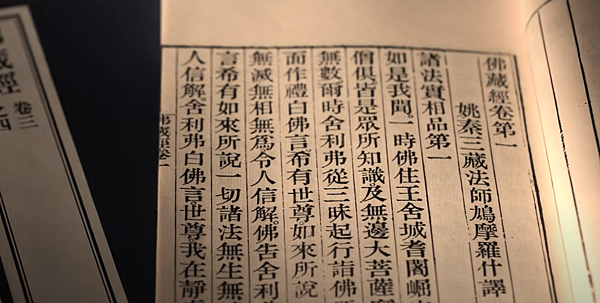 佛藏經卷第一
姚秦三藏法師鳩摩羅什譯
諸法實相品第一
如是我聞一時佛住王舍城耆闍崛
僧俱皆是眾所知識及無邊大菩薩
無數爾時舍利弗從三昧起行詣佛
而作禮白佛言希有世尊如來所說
無滅無相無為令人信解佛告舍利
言希有如來所說一切諸法無生無
人信解舍利弗白佛言世尊我在靜
佛藏經卷一
藏經 卷三
之四